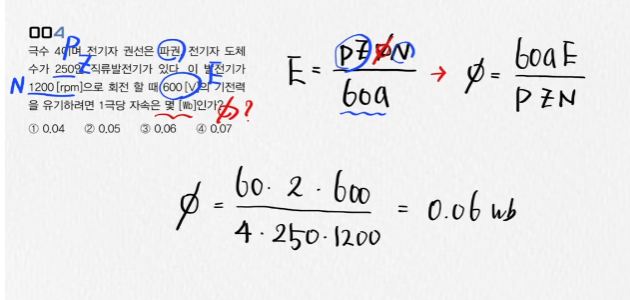 004
극수 4이며 전기자 권선은 파권, 전기자 도체
수가 250인 직류발전기가 있다. 이 발전기가
1200 [rpm]으로 회전 할 때 600 [V]의 기전력
을 유기하려면 1극당 자속은 몇 [Wb]인가?
① 0.04 ② 0.05 ③ 0.06 ④ 0.07
P
Z
N
E
ϕ?
E = PZϕN / 60a → ϕ = 60aE / PZN
ϕ = 60·2·600 / 4·250·1200 = 0.06 wb